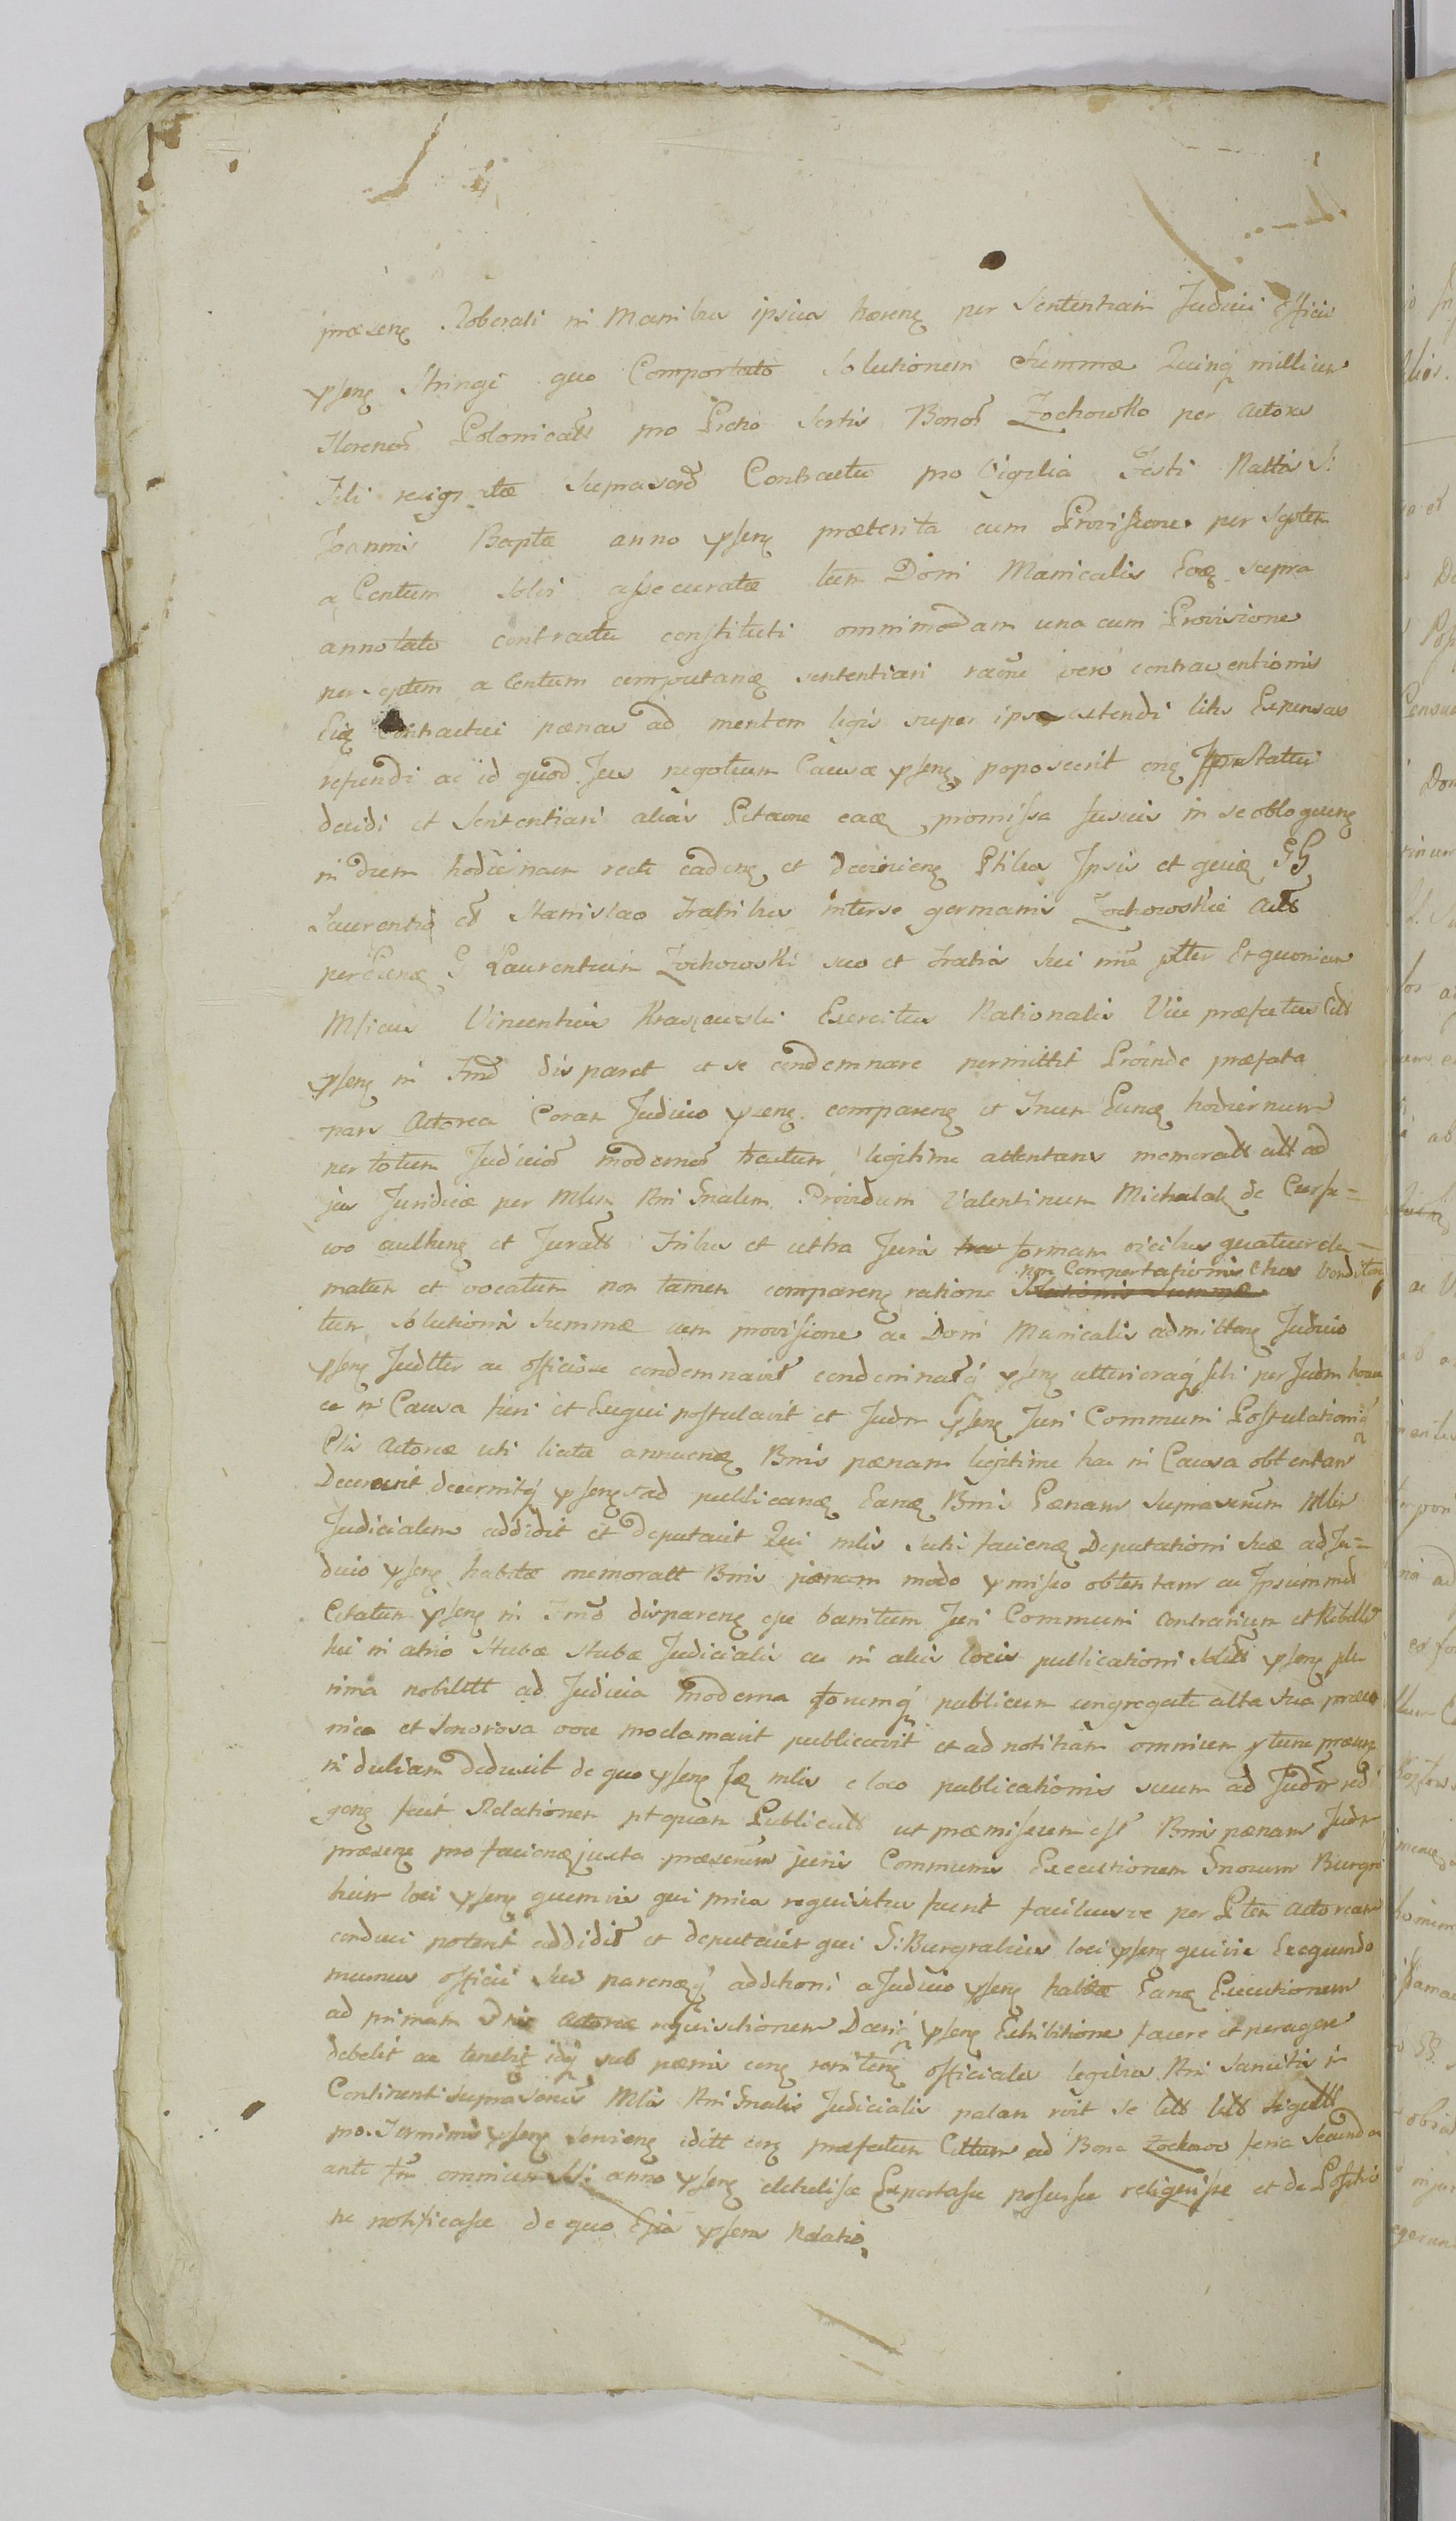 præsenꝫ Roborati in Manibus ipsius hærenꝫ per Sententiam Judicii Officii
pſenꝫ Stringi quo Comportato Solutionem Summæ Quinqꝫ millium
Florenoꝝ Polonicalt pro Pretio Sortis Bonoꝝ Zochowko per Actores
Sibi resignatæ Suprascrꝫ Contractu pro Vigilia Festi Nattis S:
Joannis Baptæ anno pſenꝫ præterita cum Provisione per Septem
a Centum Solvi assecuratæ tum Doni Manicalis Eodꝫ supra
annotato contractu constituti omnimodam una cum Provisione
per septem a Centum computanꝫ sententiari raõne vero contraventionis
Eidꝫ Contractui pænas ad mentem legis super ipso extendi litis Expensas
refundi ac id quod Jus negotium Causæ pſenꝫ poposcerit enꝫ Statui
decidi et Sententiari aliàs Citaõne eadꝫ promissa fusius in se obloquenꝫ
in diem hodiernam recte cadenꝫ et devenienꝫ Ptibus Ipsis et quidꝫ GG
Laurentio et Stanislao Fratribus interse germanis Zochowskie Actt
per Eundꝫ G Laurentium Zochowski suo et Fratris sui nñe ptter Et quoniam
Mficus Vincentius Kraszewski Exercitus Nationalis Vice præfectus Citt
pſenꝫ in Tmõ disparet et se condemnare permittit Proinde præfata
pars Actorea Coram Judicio pſenꝫ comparenꝫ et Tnum Eundꝫ hodiernum
per totum Judicioꝝ modernoꝝ tractum legitime attentans memoratt citt ad
jus Juridice per Mlem Rni Gnalem Providum Valentinum Michalak de Cursu=
wo authenꝫ et Juratt Tribus et ultra Juris formam vicibus quatuor cla=
matum et vocatum non tamen comparenꝫ ratione ~~Solutionis Summæ~~ non Comportationis Venditen
tum Solutionis Summæ cum provisione ac Doni Manicalis admittenꝫ Judicio
pſenꝫ Judtter ac officiose condemnavit condemnatqꝫ pſenꝫ ulterioraqꝫ sibi per Judm
ce in Causa fieri et Exequi postulavit et Judm pſenꝫ Juri Communi Postulationiqꝫ
Ptis Actoreæ uti licitæ annuenꝫ Bnis pænam legitime hac in Causa obtentam
Decrevit decernitqꝫ pſenꝫ ad publicandꝫ Eandꝫ Bnis Pænam Suprascrum Mlem
Judicialem addidit et Deputavit Qui mlis Satisfaciendꝫ Deputationi suæ ad Ju=
dicio pſenꝫ habitæ memoratt Bnis pænam modo pmisso obtentam ac Ipsummet
Citatum pſenꝫ in Tmõ disparenꝫ esse banitum Juri Communi Contrarium et Rebellem
hic in atrio Stubæ Stubæ Judicialis ac in aliis locis publicationi solitt pſenꝫ plu
rima nobilitt ad Judicia moderna forumqꝫ publicum congregata alta sua præco
nica et Sonorosa voce proclamavit publicavit et ad notitiam omnium ptunc præsenꝫ
in dubiam deduxit de quo pſenꝫ Idꝫ mlis e loco publicationis suum ad Judm redi
genꝫ fecit Relationem ptquam Publicatt ut præmissum est Bnis pænam Judm
præsenꝫ pro faciendꝫ juxta præscrum juris Communis Executionem Gnosum Burgra
bium loci pſenꝫ quemvis qui prius requisitus fuerit faciliusve per Ptem Actoream
conduci poterit addidit et deputavit qui G: Burgrabius loci pſenꝫ quivis Exequendo
munus officii sui parendoqꝫ additioni a Judicio pſenꝫ habitæ Eandꝫ Executionem
ad primam Ptis Actoreæ requisitionem Dtiqꝫ pſenꝫ Exhibitione facere et peragere
debebit ac tenebit idqꝫ sub pænis conꝫ renitenꝫ officiales legibus Rni Sancitis in
Continenti suprascrus Mlis Rni Gnalis Judicialis palam rcit se litt sigillt
pro Termino pſenꝫ servienꝫ editt conꝫ præfatum Cittum ad Bona Zochowo feria Secunda
ante fm omnium SS: anno pſenꝫ detulisse Exportasse posuisse reliquisse et de Positio
ne notificasse de quo Ejus pſens Relatio